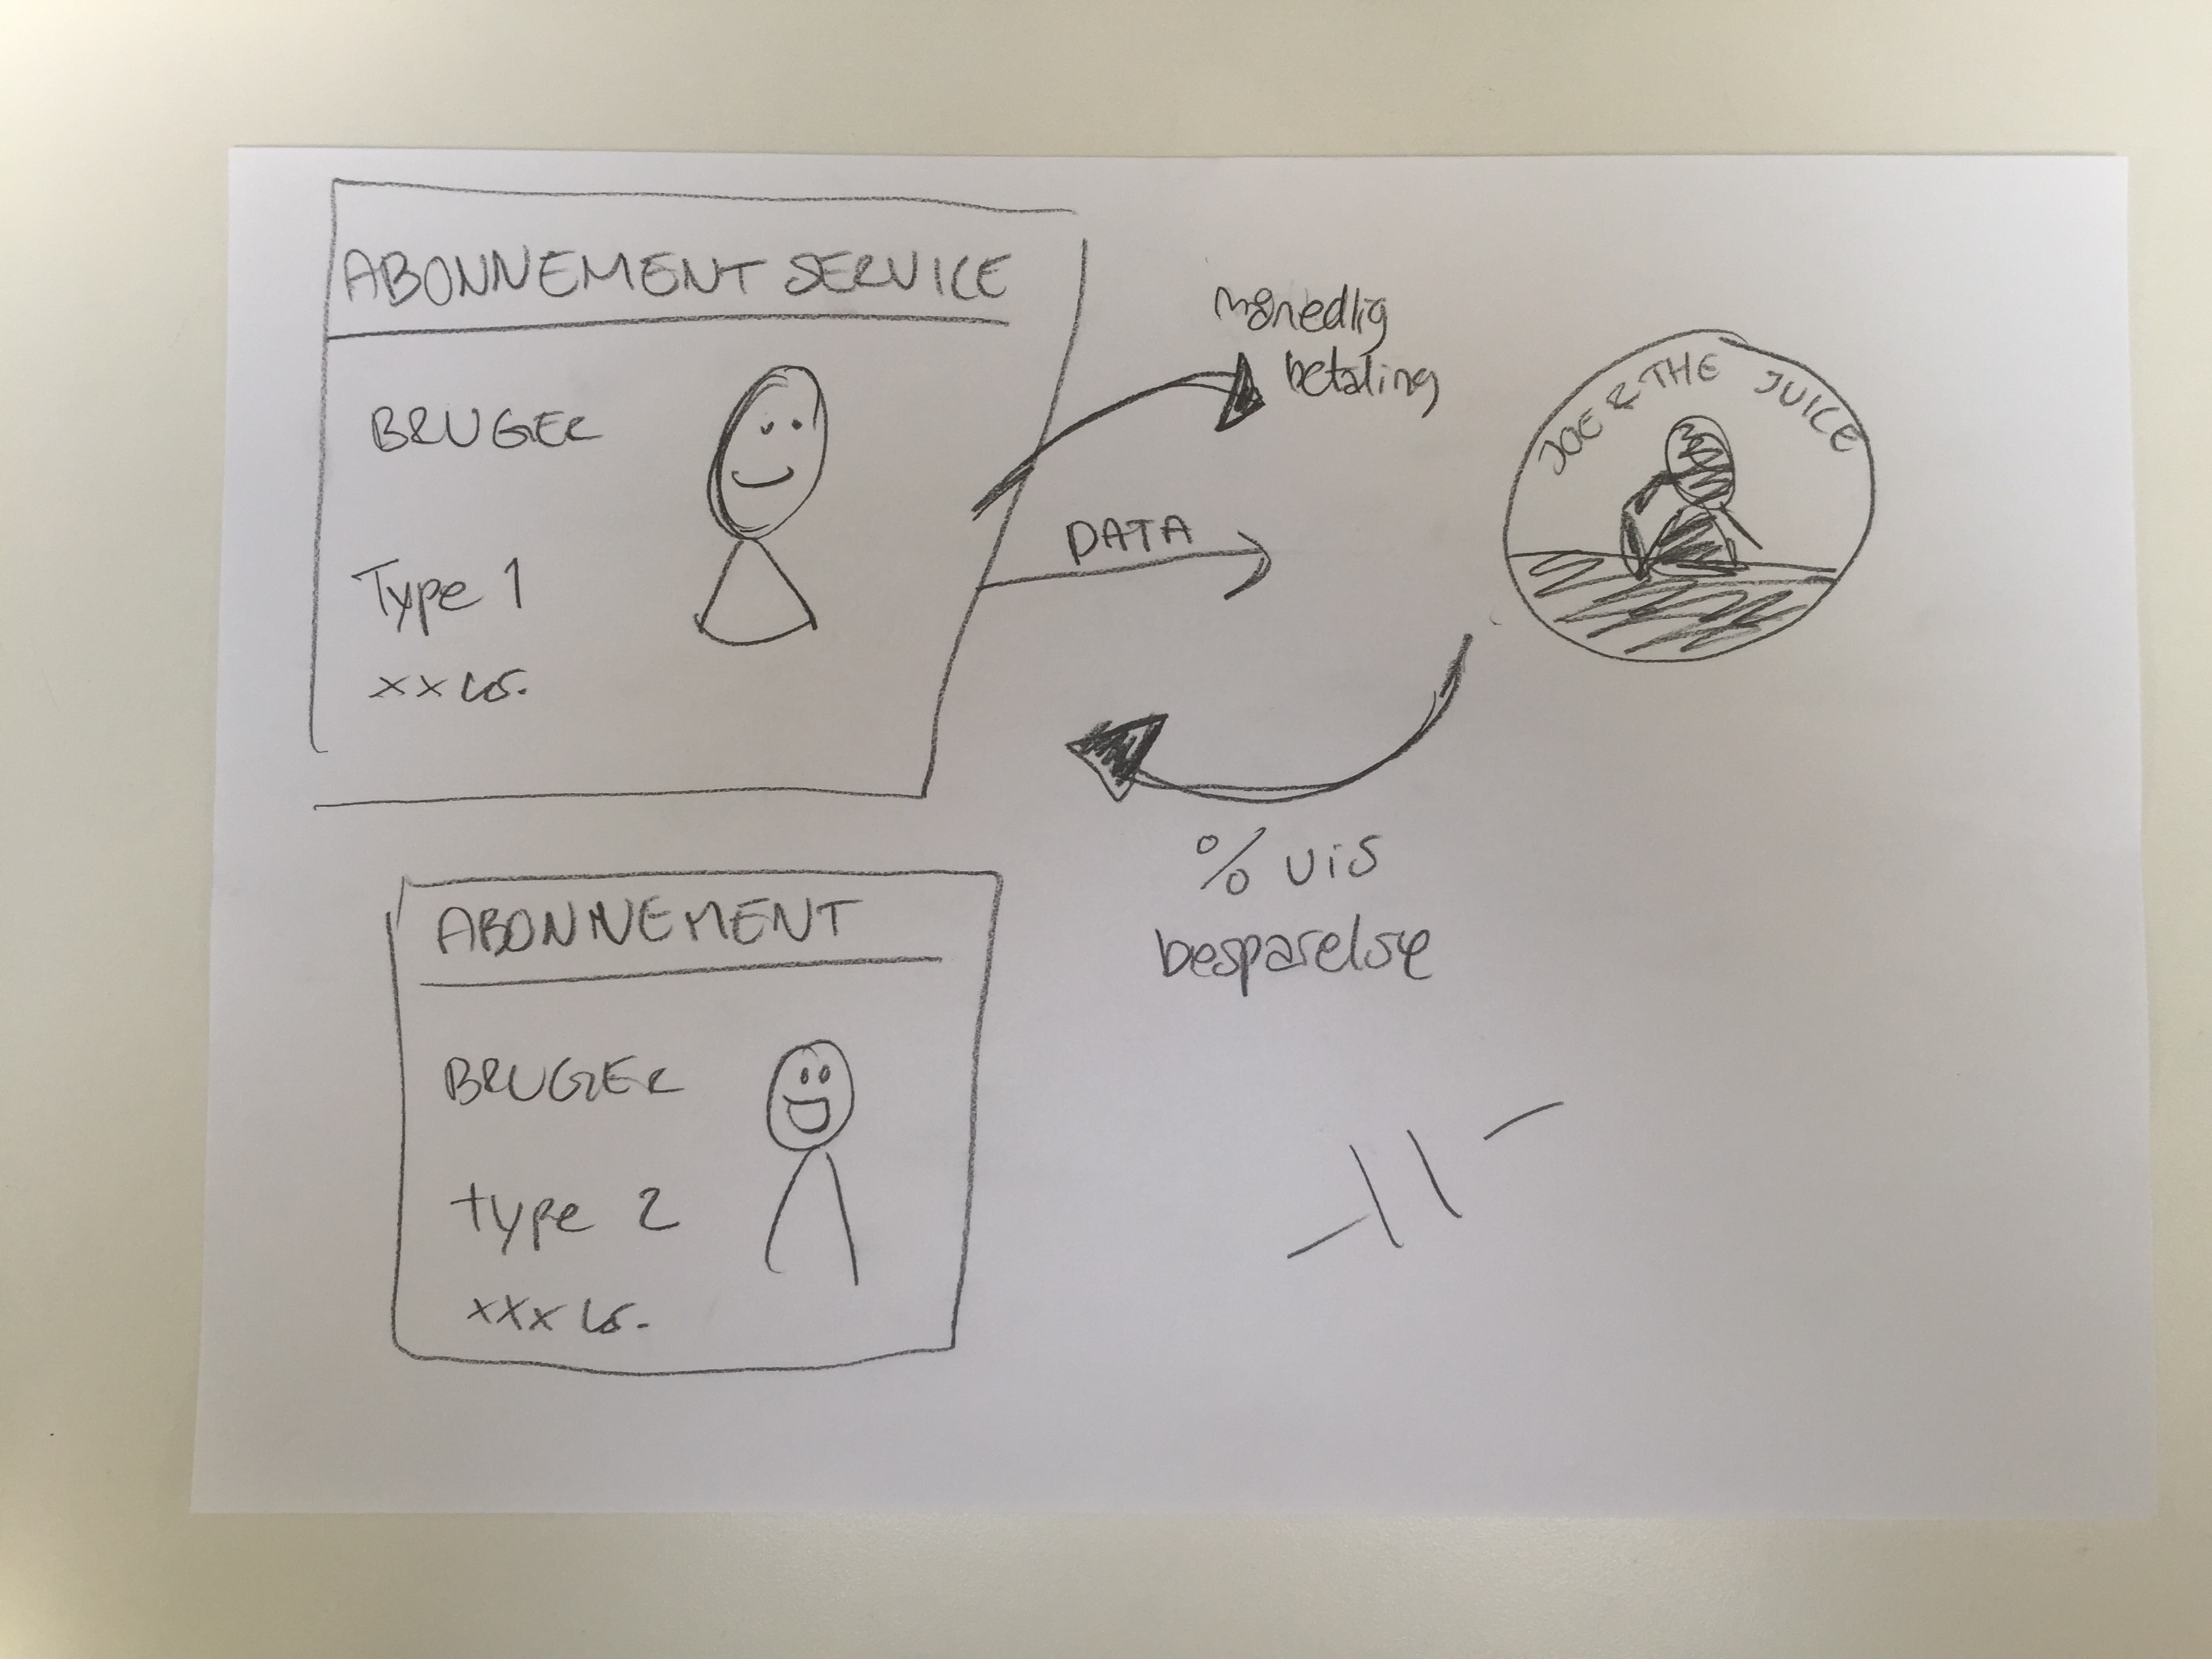 ABONNEMENT SERVICE
BRUGER
Type 1
xx kr.
månedlig
betaling
DATA
JOE & THE JUICE
% vis
besparelse
ABONNEMENT
BRUGER
type 2
xxx kr.
-||-